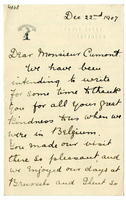 Dec 22nd 1907
Dear Monsieur Cumont.
We have been
intending to write
for some time to thank
you for all your great
kindness to us when we
were in Belgium.
You made our visit
there so pleasant and
we enjoyed our days at
Brussels and Ghent so